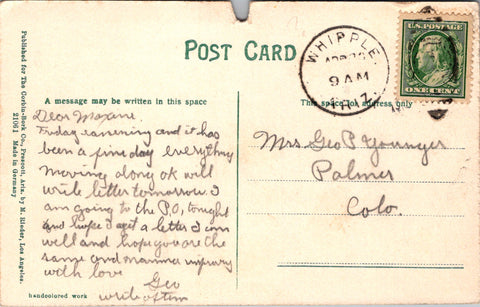 POST CARD
A message may be written in this space
This space for address only
WHIPPLE
APR
9 AM
ARIZ.
U.S. POSTAGE
ONE CENT
Published for The Corbin-Bork Co., Prescott, Ariz. by M. Rieder, Los Angeles.
21061 Made in Germany
Dear Maxine.
Friday evening and it has
been a fine day everything
moving along ok will
write letter tomorrow. I
am going to the P.O. tonight
and hope I get a letter I am
well and hope you are the
same and mamma improving
with love
Geo
write often
Mrs. Geo P Younger
Palmer
Colo.
handcolored work